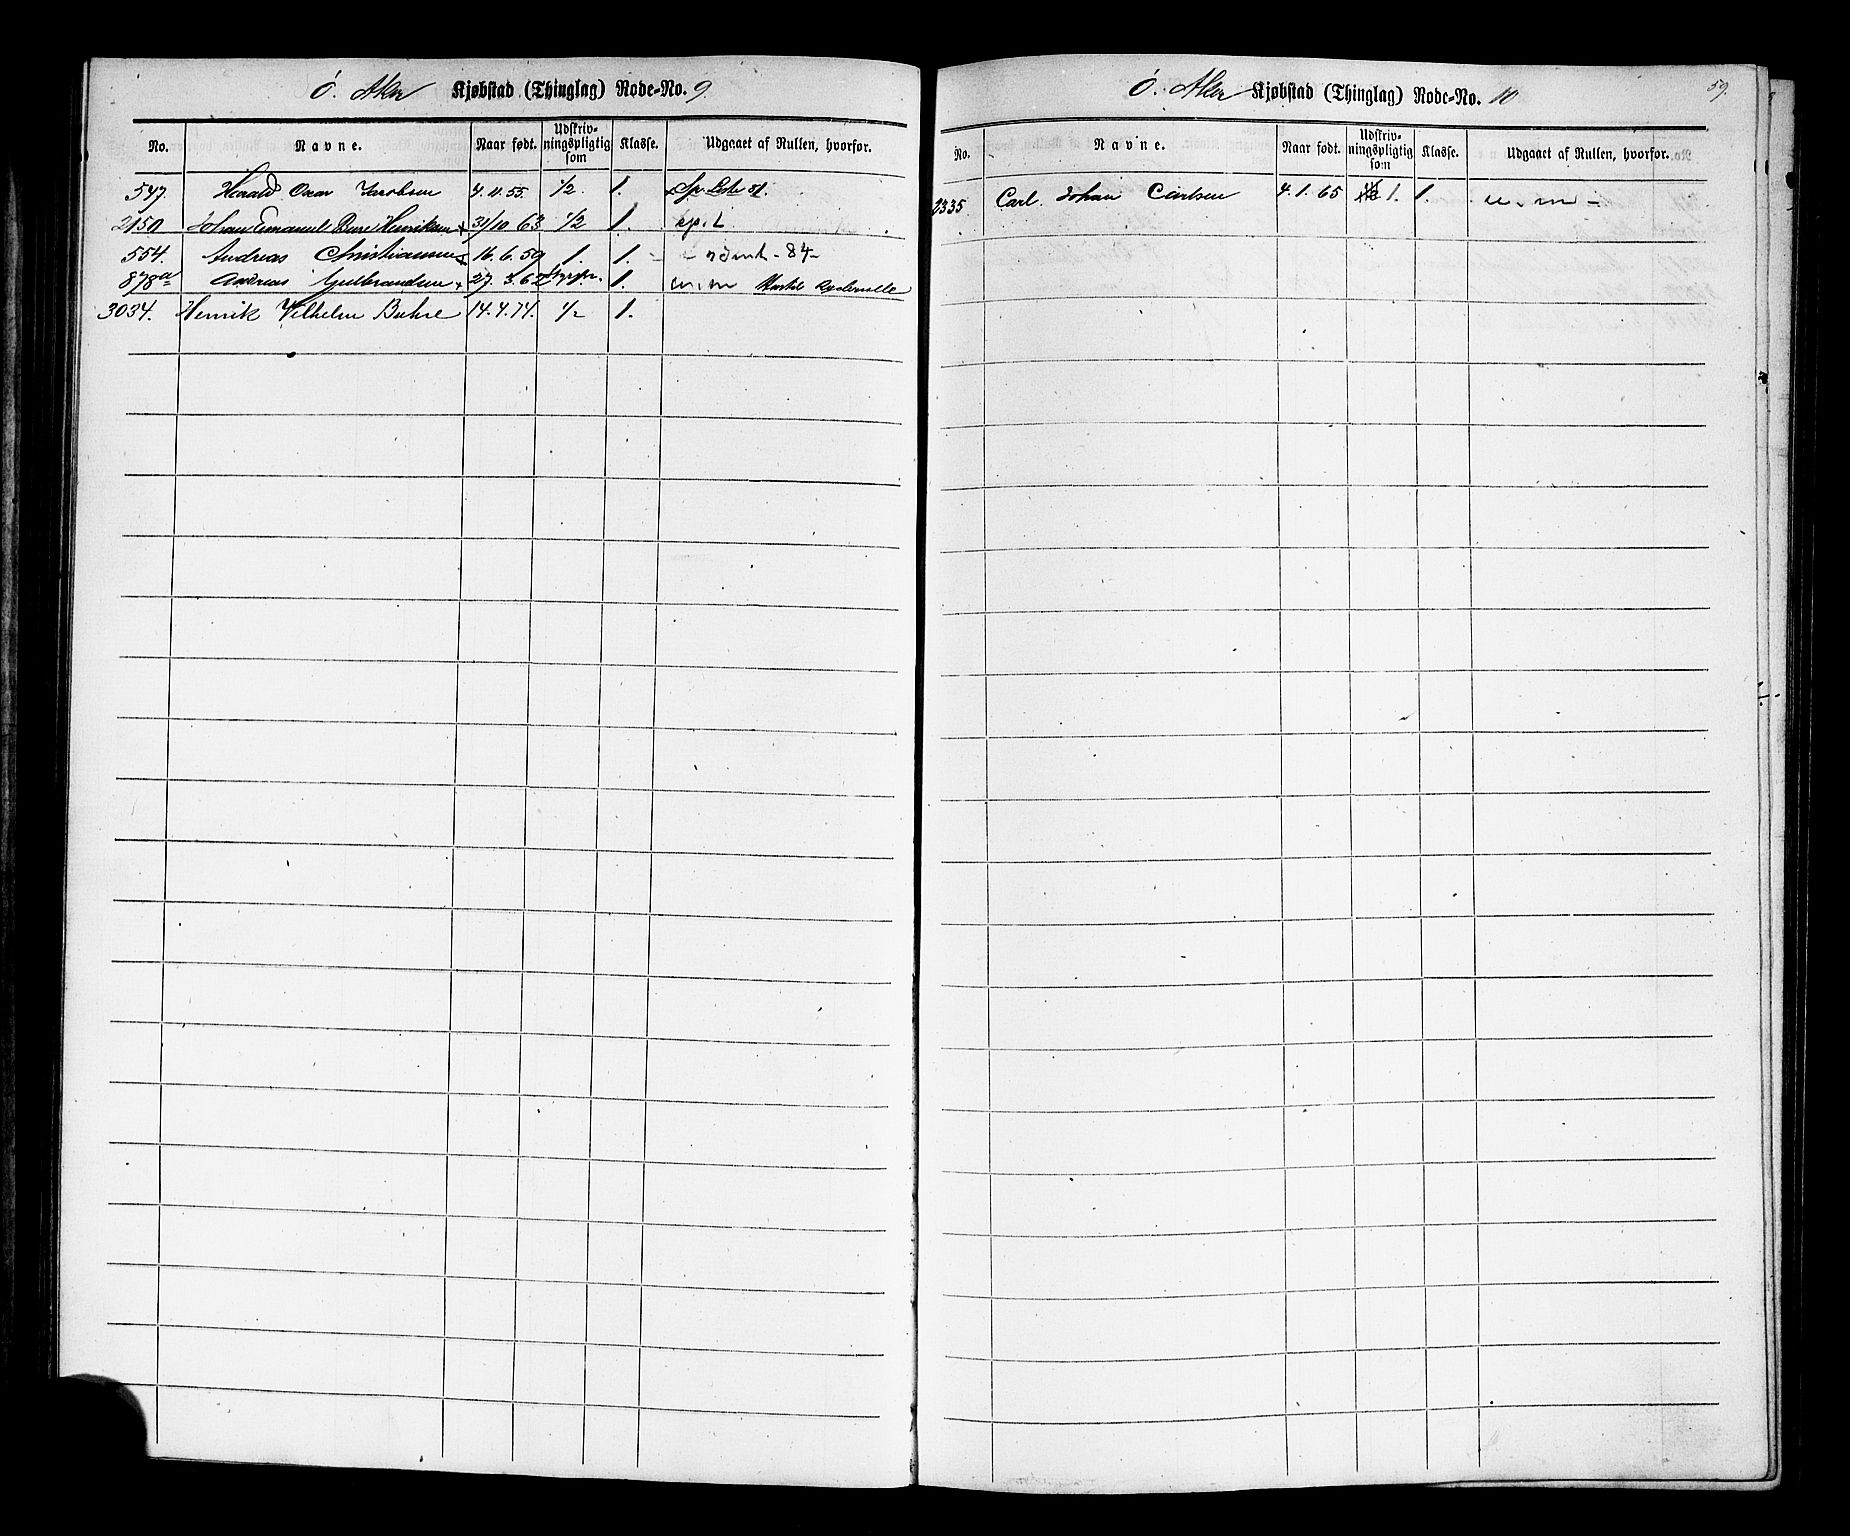 Ö. Aker Kjøbstad (Thinglag) Rode-No. 9
No. Navne. Naar født. Udskriv-ningspligtig som Klasse. Udgaaet af Rullen, hvorfor.
547. Harald Oscar Jacobsen 4.11.55. 1/2. 1.
2150 Johan Emanuel Henriksen 31/10 63 1/2 1.
554. Andreas Christiansen 16.6.59 1. 1. 84
878a Andreas Gulbrandsen 27.3.62 1.
3034. Henrik Vilhelm Buhre 14.4.74. 1/2 1.
59.
Ö. Aker Kjøbstad (Thinglag) Rode-No. 10
No. Navne. Naar født. Udskriv-ningspligtig som Klasse. Udgaaet af Rullen, hvorfor.
2335 Carl Johan Carlsen 4.1.65 1. 1.